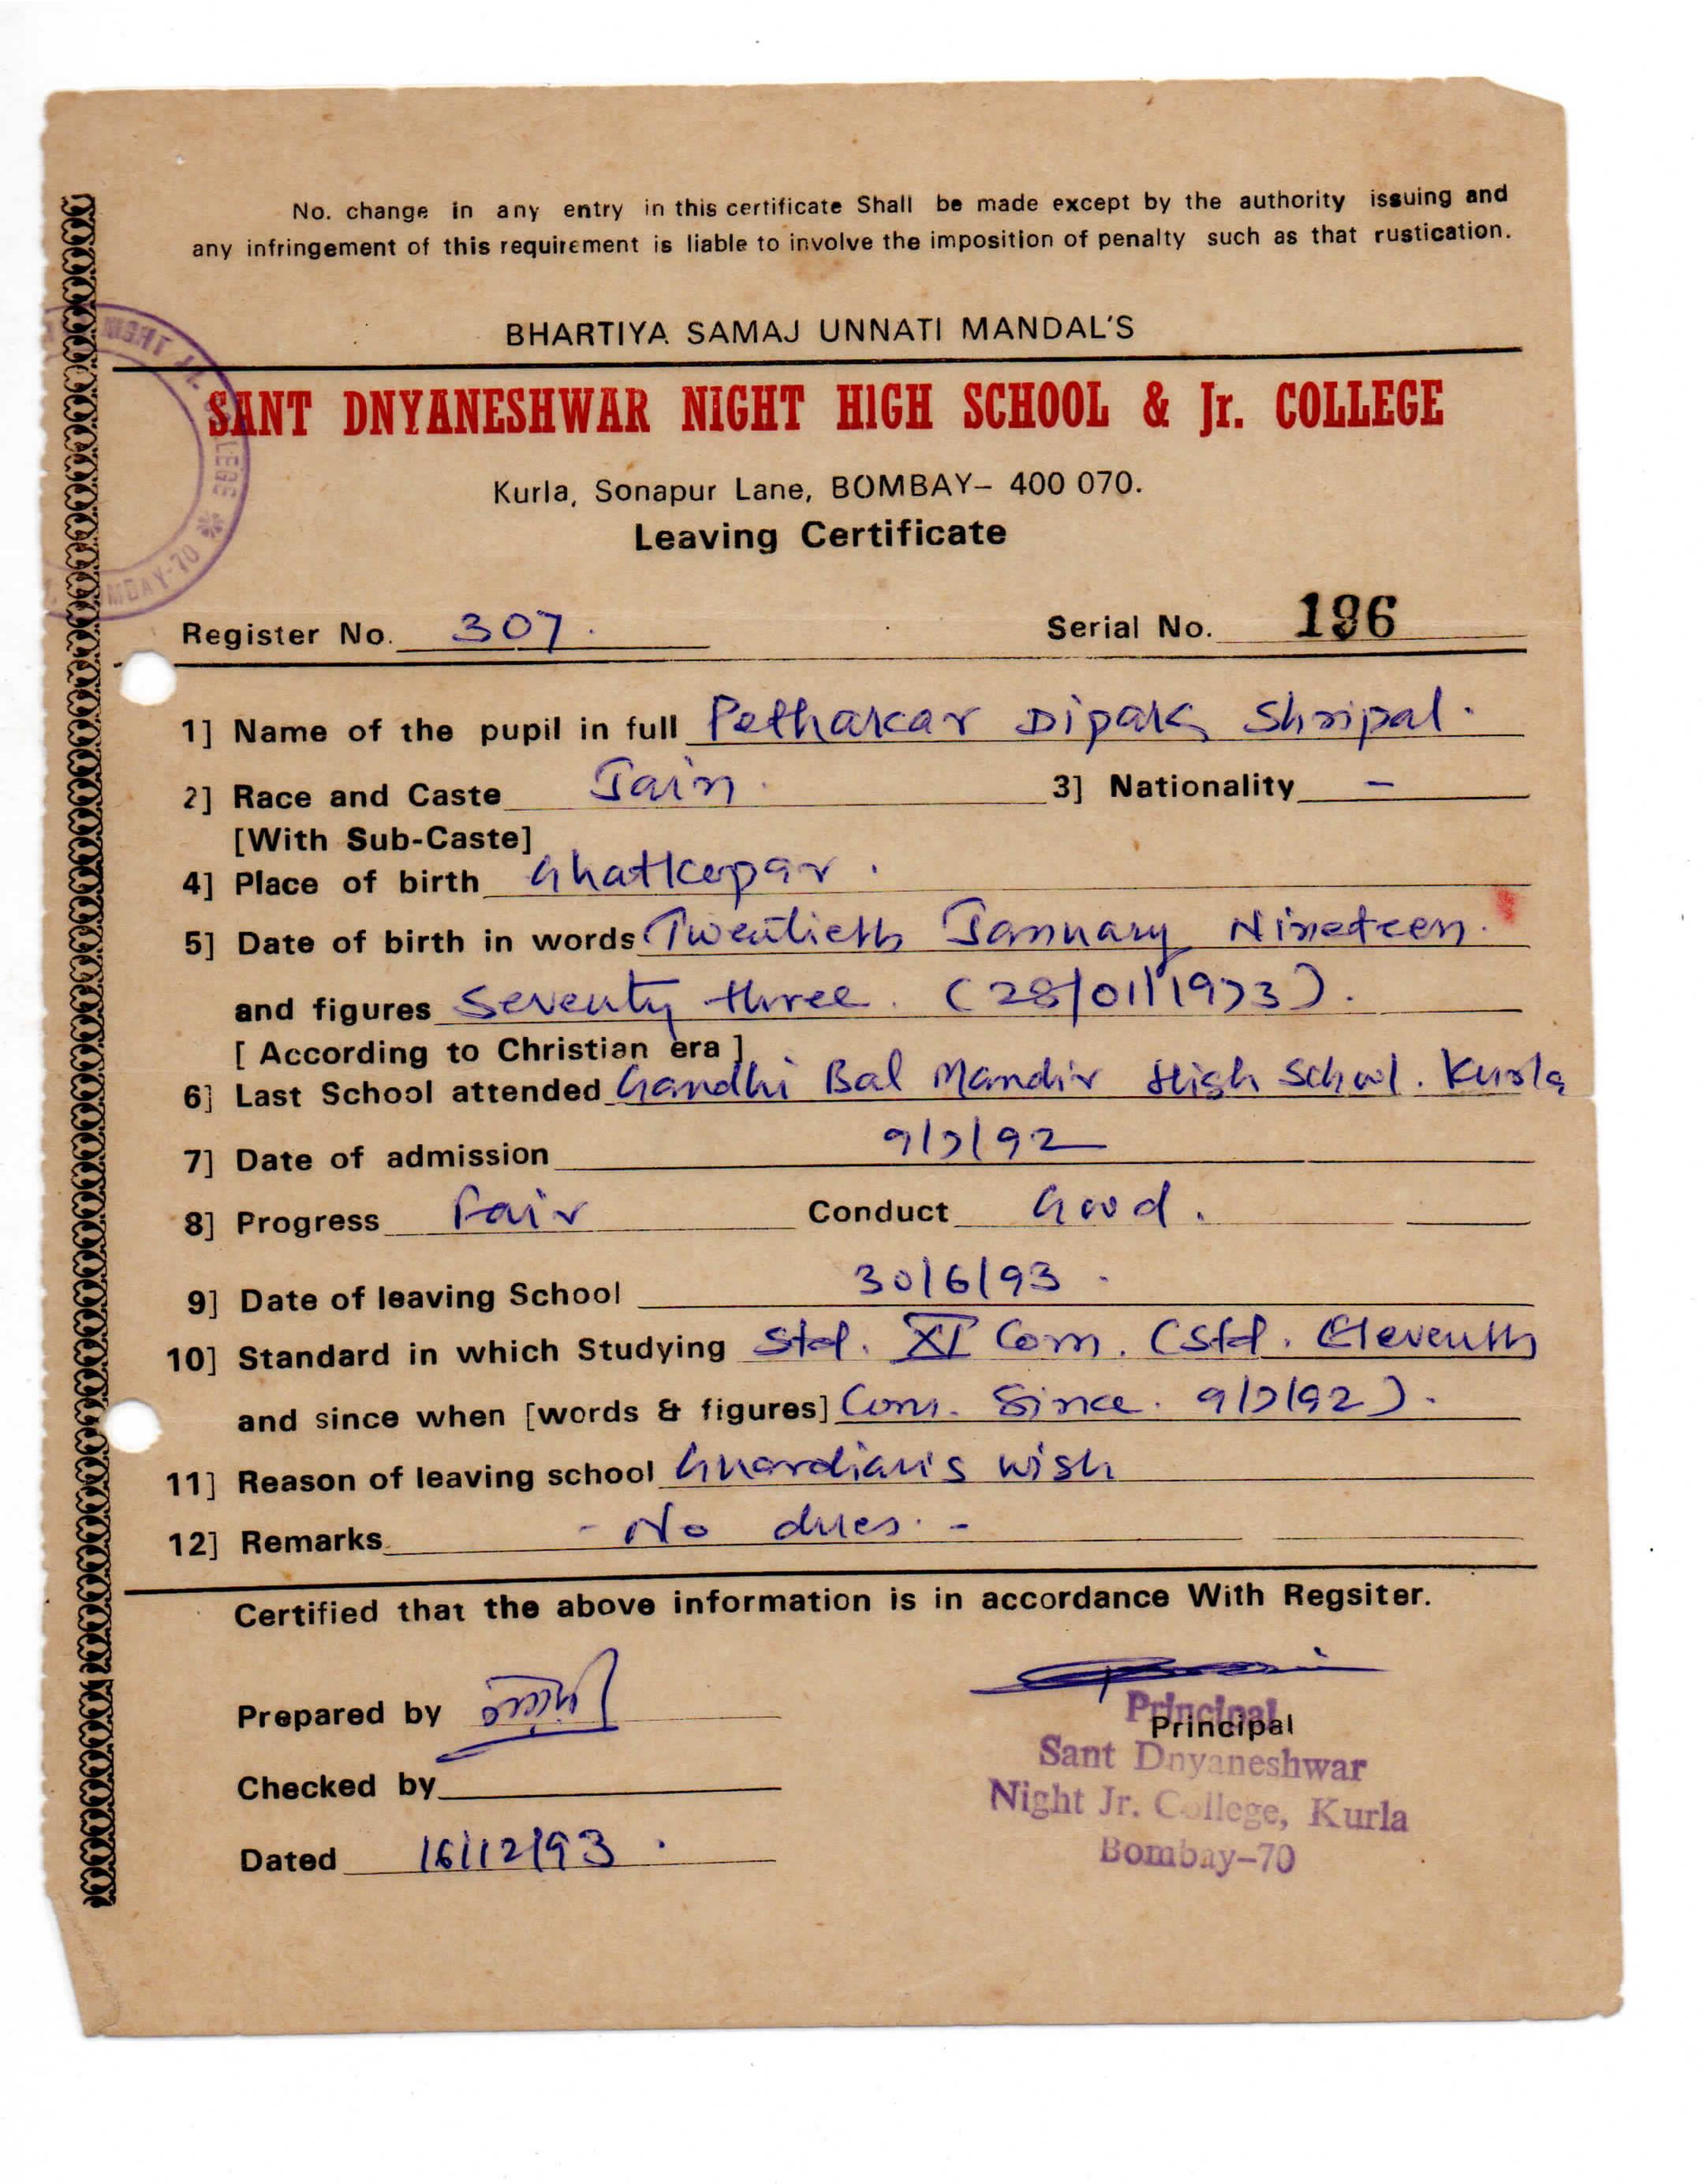 No. change in any entry in this certificate Shall be made except by the authority issuing and
any infringement of this requirement is liable to involve the imposition of penalty such as that rustication.
BHARTIYA SAMAJ UNNATI MANDAL'S
SANT DNYANESHWAR NIGHT HIGH SCHOOL & Jr. COLLEGE
Kurla, Sonapur Lane, BOMBAY– 400 070.
Leaving Certificate
NIGHT JR. COLLEGE * BOMBAY-70
Register No. 307. Serial No. 196
1] Name of the pupil in full Pethakar Dipak Shripal.
2] Race and Caste Jain. 3] Nationality –
[With Sub-Caste]
4] Place of birth Ghatkopar.
5] Date of birth in words Twentieth January Nineteen.
and figures Seventy three. (28/01/1973).
[ According to Christian era ]
6] Last School attended Gandhi Bal Mandir High School. Kurla
7] Date of admission 9/7/92
8] Progress Fair Conduct Good.
9] Date of leaving School 30/6/93.
10] Standard in which Studying Std. XI Com. (Std. Eleventh
and since when [words & figures] Com. Since. 9/7/92).
11] Reason of leaving school Guardian's wish
12] Remarks - No dues. -
Certified that the above information is in accordance With Regsiter.
Prepared by
Principal
Principal
Sant Dnyaneshwar
Checked by
Night Jr. College, Kurla
Dated 16/12/93.
Bombay–70